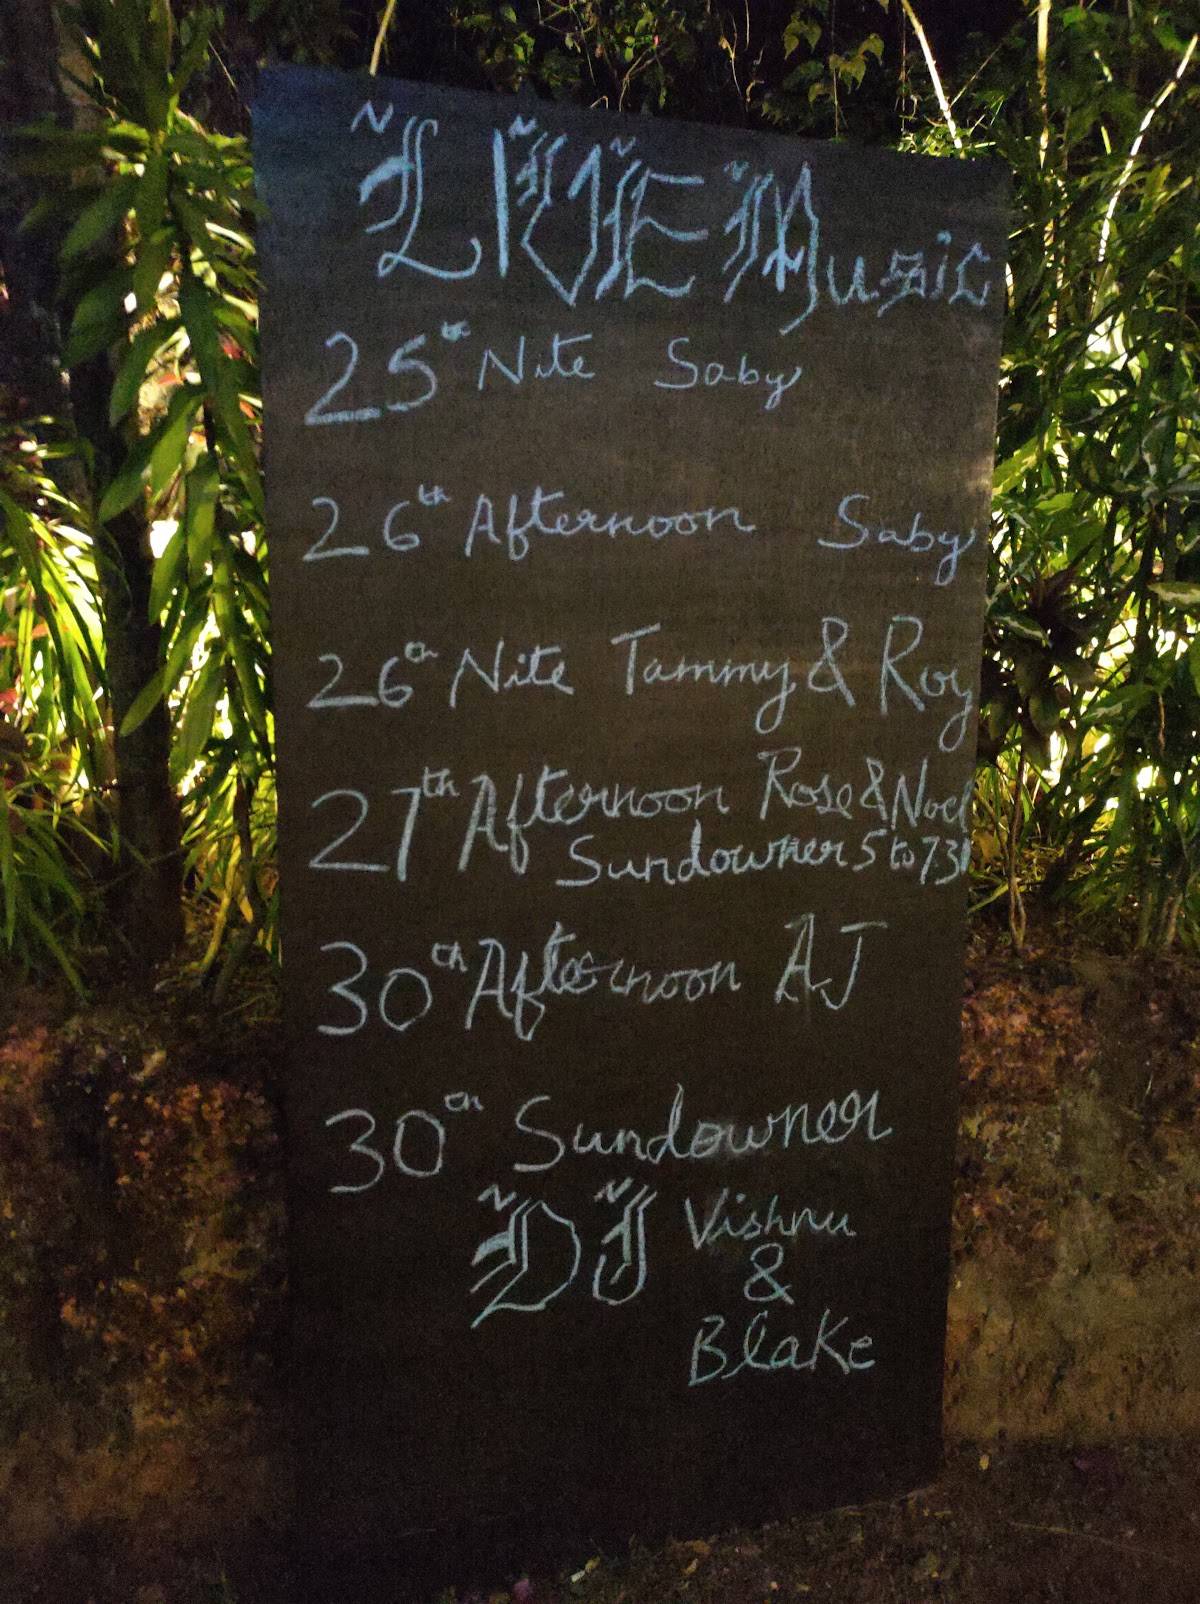 LIVE Music
25th Nite Saby
26th Afternoon Saby
26th Nite Tammy & Roy
27th Afternoon Rose & Noel
Sundowner 5 to 730
30th Afternoon AJ
30th Sundowner
DJ Vishnu
&
Blake